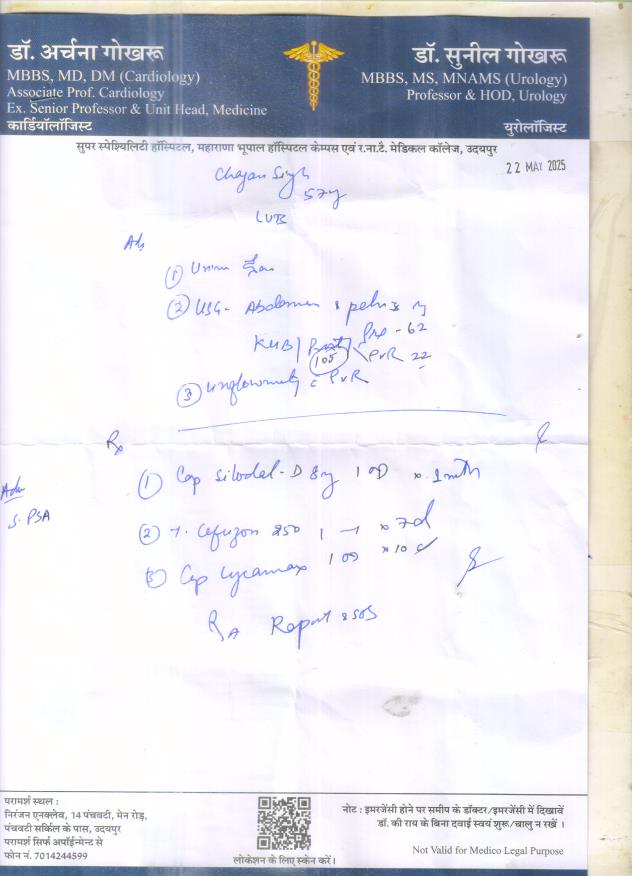 डॉ. अर्चना गोखरू
MBBS, MD, DM (Cardiology)
Associate Prof. Cardiology
Ex. Senior Professor & Unit Head, Medicine
कार्डियॉलॉजिस्ट
डॉ. सुनील गोखरू
MBBS, MS, MNAMS (Urology)
Professor & HOD, Urology
युरोलॉजिस्ट
सुपर स्पेश्यिलिटी हॉस्पिटल, महाराणा भूपाल हॉस्पिटल केम्पस एवं र.ना.टै. मेडिकल कॉलेज, उदयपुर
22 MAY 2025
Singh
57y
Adv
① Urine
② USG - Abdomen & pelvis
KUB / Pre - 62
105 PVR 22
③ Uroflowmetry c PVR
Rx
① Cap Silodal-D 8mg 1 OD x 1 mth
Adv
S. PSA
② T. 250 1 - 1 x 7d
③ Cap Lycamax 1 OD x 10
Report & SOS
परामर्श स्थल :
निरंजन एनक्लेव, 14 पंचवटी, मेन रोड़,
पंचवटी सर्किल के पास, उदयपुर
परामर्श सिर्फ अपॉईनमेन्ट से
फोन नं. 7014244599
लोकेशन के लिए स्केन करें।
नोट : इमरजेंसी होने पर समीप के डॉक्टर/इमरजेंसी में दिखावें
डॉ. की राय के बिना दवाई स्वयं शुरू/चालु न रखें ।
Not Valid for Medico Legal Purpose